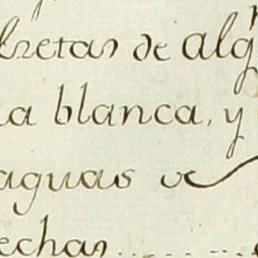 kretas de alg
na blanca, y
aguas de
echas